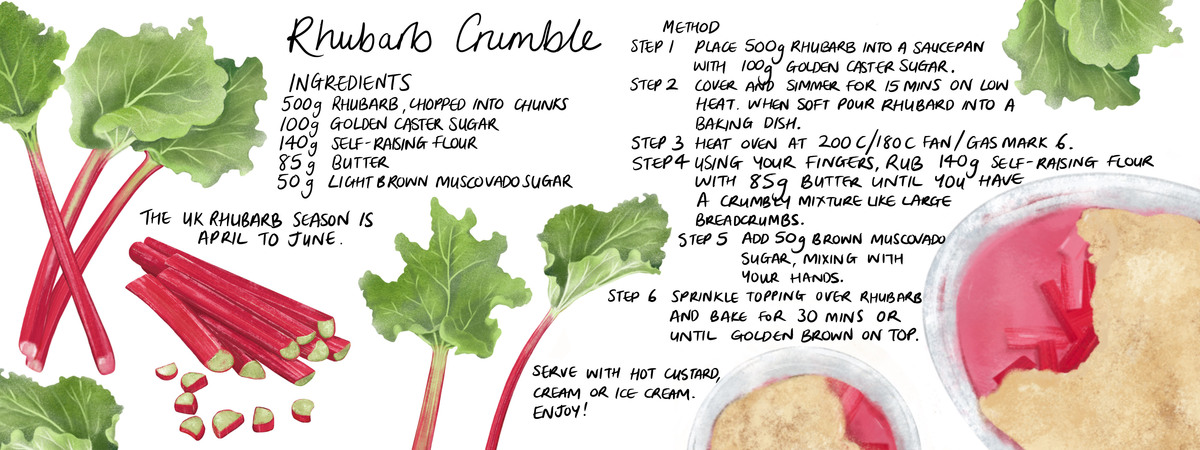 Rhubarb Crumble
INGREDIENTS
500g RHUBARB, CHOPPED INTO CHUNKS
100g GOLDEN CASTER SUGAR
140g SELF-RAISING FLOUR
85g BUTTER
50g LIGHT BROWN MUSCOVADO SUGAR
THE UK RHUBARB SEASON IS
APRIL TO JUNE.
METHOD
STEP 1 PLACE 500g RHUBARB INTO A SAUCEPAN
WITH 100g GOLDEN CASTER SUGAR.
STEP 2 COVER AND SIMMER FOR 15 MINS ON LOW
HEAT. WHEN SOFT POUR RHUBARD INTO A
BAKING DISH.
STEP 3 HEAT OVEN AT 200C/180C FAN/GAS MARK 6.
STEP 4 USING YOUR FINGERS, RUB 140g SELF-RAISING FLOUR
WITH 85g BUTTER UNTIL YOU HAVE
A CRUMBLY MIXTURE LIKE LARGE
BREADCRUMBS.
STEP 5 ADD 50g BROWN MUSCOVADO
SUGAR, MIXING WITH
YOUR HANDS.
STEP 6 SPRINKLE TOPPING OVER RHUBARB
AND BAKE FOR 30 MINS OR
UNTIL GOLDEN BROWN ON TOP.
SERVE WITH HOT CUSTARD,
CREAM OR ICE CREAM.
ENJOY!